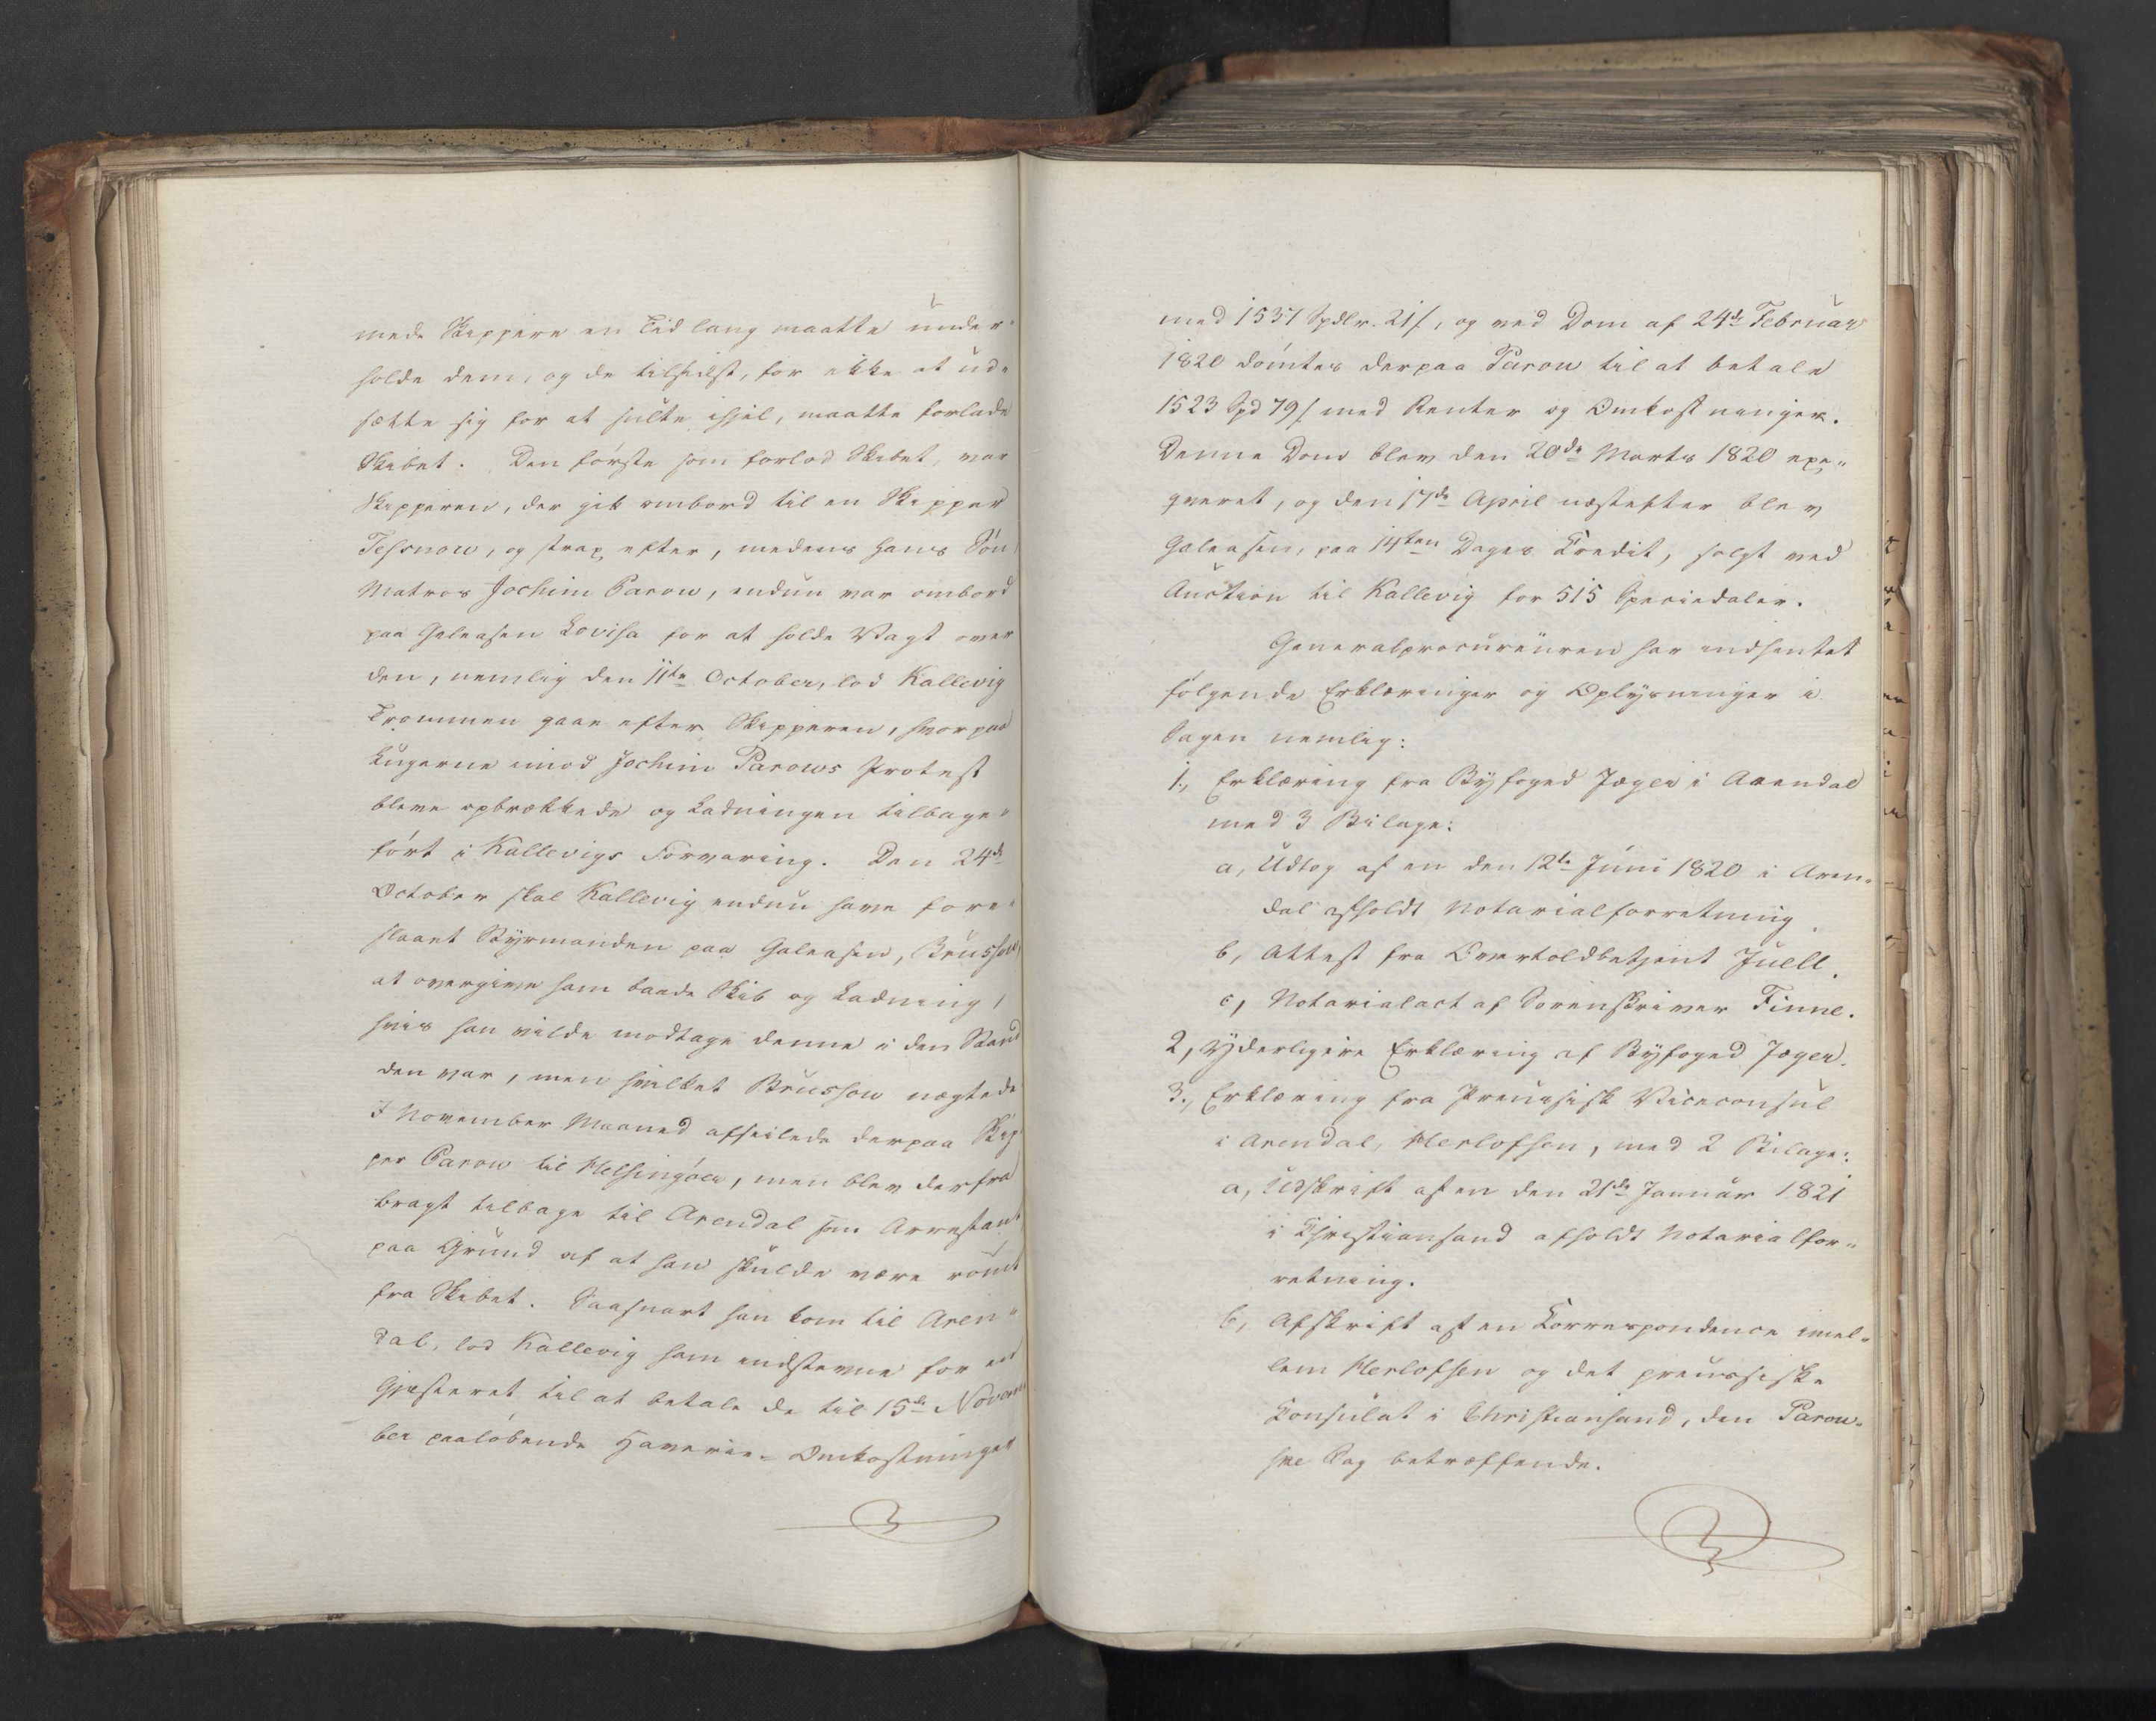 mede Skippere en Tid lang maatte under-
holde dem, og de tilsidst, for ikke at ud-
sætte sig for at sulte ihjel, maatte forlade
Skibet. Den første som forlod Skibet, var
Skipperen, der gik ombord til en Skipper
Tessnow, og strax efter, medens hans Søn
Matros Jochim Parow, endnu var ombord
paa Galeasen Lovisa for at holde Vagt over
den, nemlig den 11te October, lod Kallevig
Trommen gaae efter Skipperen, hvorpaa
Lugerne imod Jochim Parows Protest
bleve opbrækkede og Ladningen tilbage-
ført i Kallevigs Forvaring. Den 24de
October skal Kallevig endnu have fore-
slaaet Styrmanden paa Galeasen, Brussow,
at overgive ham baade Skib og Ladning,
hvis han vilde modtage denne i den Stand
den var, men hvilket Brussow nægtede
I November Maaned afseilede derpaa Skip-
per Parow til Helsingøer, men blev derfra
bragt tilbage til Arendal som Arrestant
paa Grund af at han skulde være rømt
fra Skibet. Saasnart han kom til Aren-
dal, lod Kallevig ham indstævne for en
Gjesteret til at betale de til 15de Novem-
ber paaløbende Haverie-Omkostninger
med 1537 Spdlr. 21 ſ, og ved Dom af 24de Februar
1820 dømtes derpaa Parow til at betale
1523 Spd 79 ſ med Renter og Omkostninger.
Denne Dom blev den 20de Marts 1820 exe-
qveret, og den 17de April næstefter blev
Galeasen, paa 14ten Dages Credit, solgt ved
Auction til Kallevig for 515 Speciedaler.
Generalprocureuren har indhentet
følgende Erklæringer og Oplysninger i
Sagen nemlig:
1., Erklæring fra Byfoged Jæger i Arendal
med 3 Bilage:
a, Udtog af en den 12te Juni 1820 i Aren-
dal afholdt Notarialforretning.
b, Attest fra Overtoldbetjent Juell.
c, Notarialact af Sorenskriver Finne.
2, Yderligere Erklæring af Byfoged Jæger.
3., Erklæring fra Preussisk Viceconsul
i Arendal, Herlofsen, med 2 Bilage:
a, Udskrift af en den 21de Januar 1821
i Christiansand afholdt Notarialfor-
retning.
b, Afskrift af en Correspondence imel-
lem Herlofsen og det preussiske
Consulat i Christiansand, den Parow-
ske Sag betræffende.